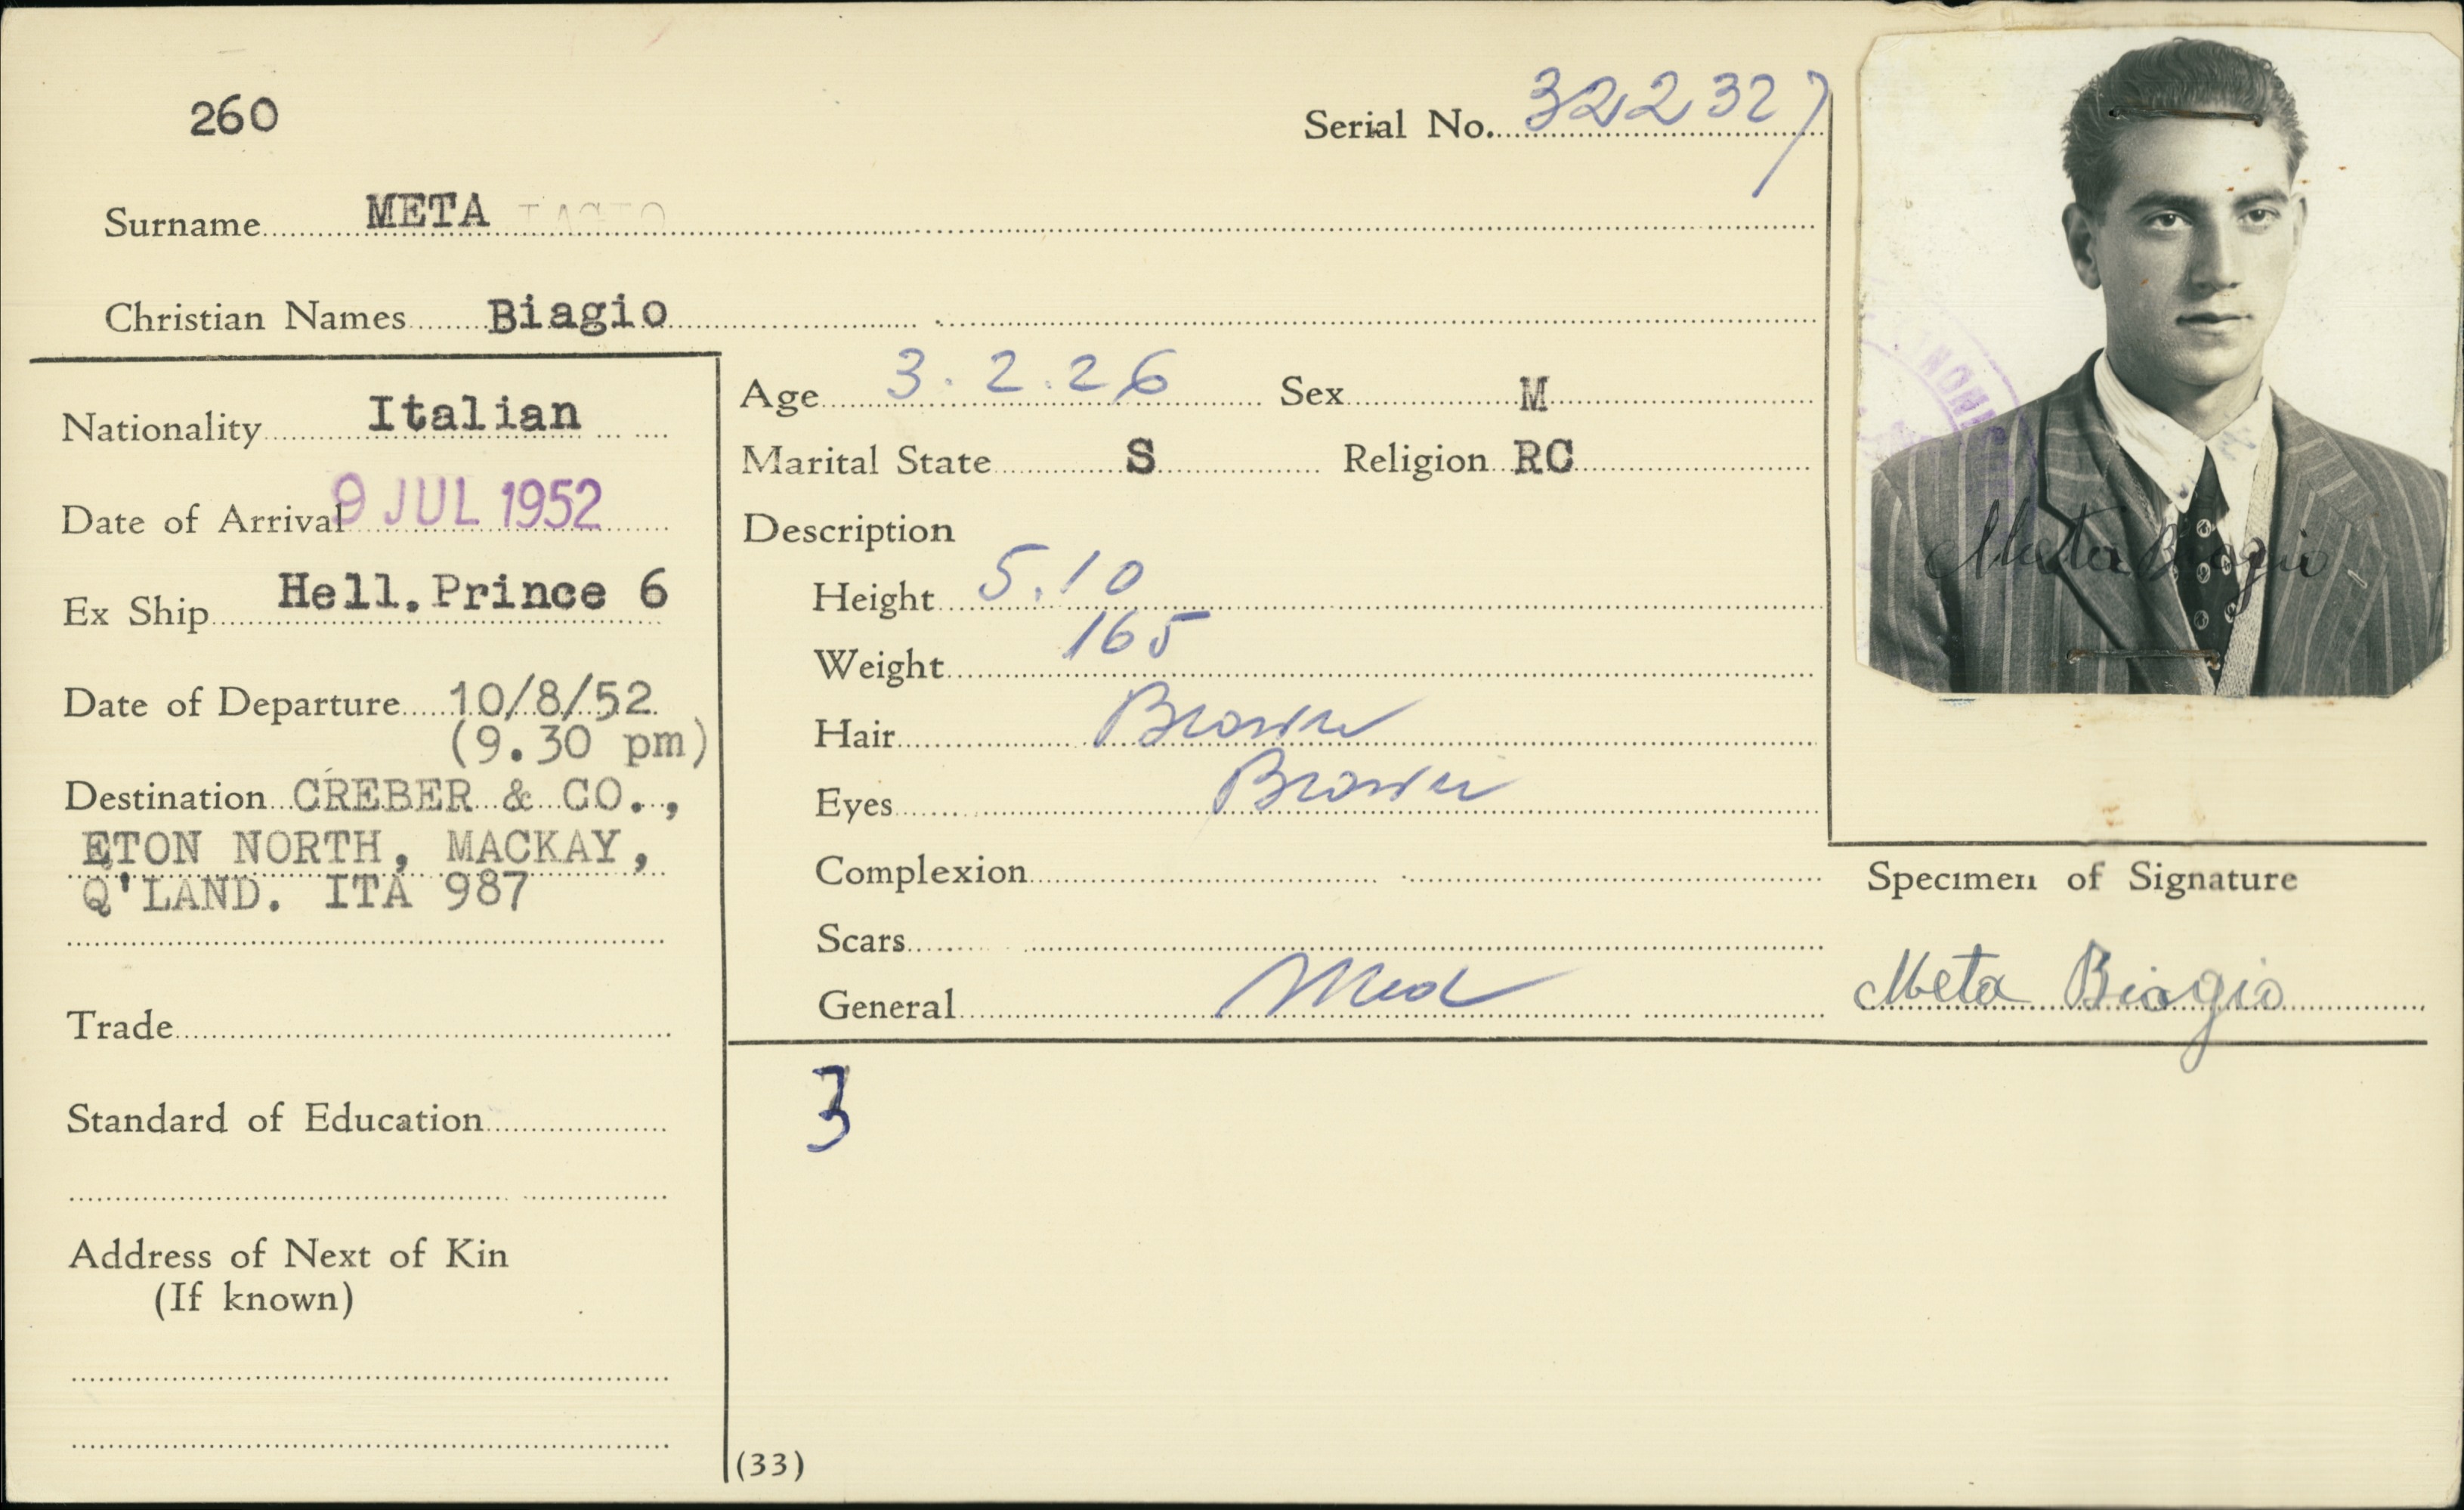 260
Serial No. 322327
Surname META
Christian Names Biagio
Nationality Italian
Date of Arrival 9 JUL 1952
Ex Ship Hell.Prince 6
Date of Departure 10/8/52
(9.30 pm)
Destination CREBER & CO.,
ETON NORTH, MACKAY,
Q'LAND. ITA 987
Trade
Standard of Education
Address of Next of Kin
(If known)
Age 3.2.26 Sex M
Marital State S Religion RC
Description
Height 5.10
Weight 165
Hair Brown
Eyes Brown
Complexion
Scars
General Med
3
(33)
Meta Biagio
Specimen of Signature
Meta Biagio